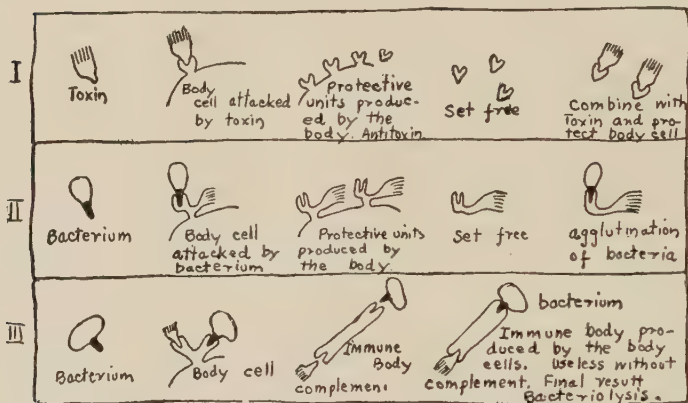 I
Toxin
Body
cell attacked
by toxin
Protective
units produc-
ed by the
body. Antitoxin
Set free
Combine with
Toxin and pro-
tect body cell
II
Bacterium
Body cell
attacked by
bacterium
Protective units
produced by
the body
Set free
agglutination
of bacteria
III
Bacterium
Body cell
Immune
Body
complement
bacterium
Immune body pro-
duced by the body
cells. Useless without
complement. Final result
Bacteriolysis.